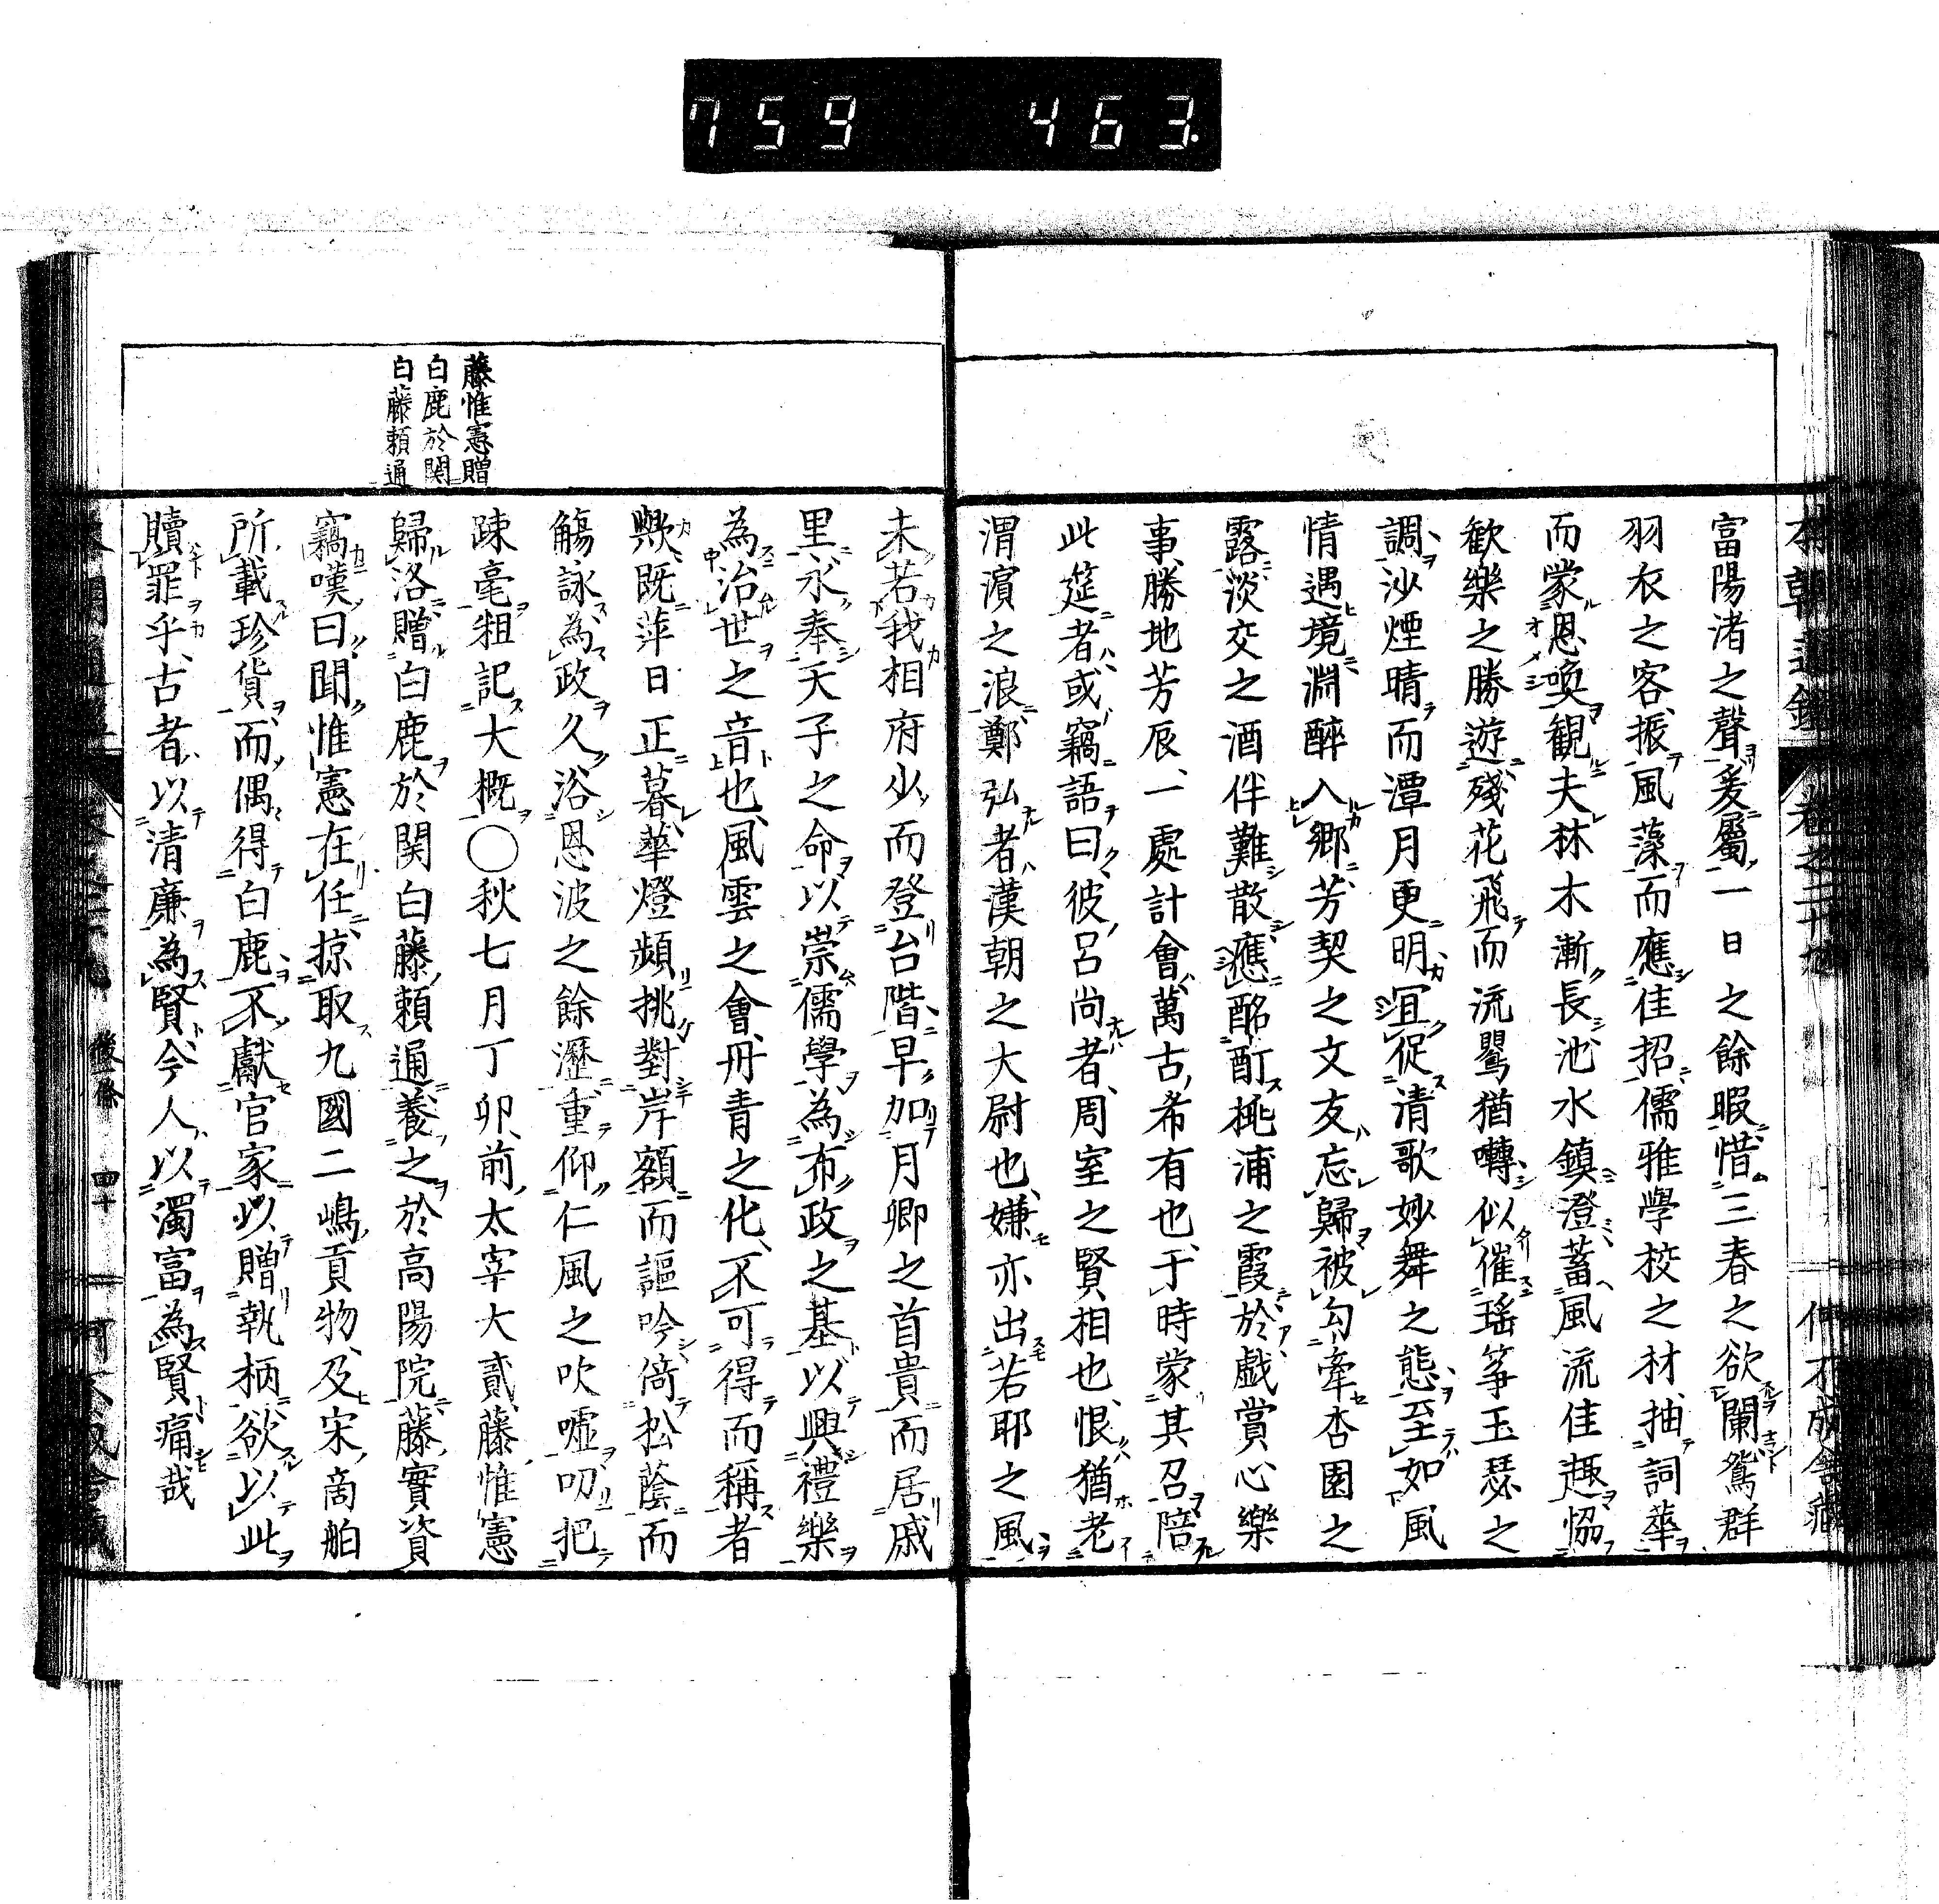 759 463.
富陽渚之聲、爰屬一日之餘暇、惜三春之欲闌、鴛群
羽衣之客、振風藻而應佳招、儒雅學校之材、抽詞華
而蒙恩喚、観夫林木漸長、池水鎮澄、蓄風流佳趣、恊
歓樂之勝遊、殘花飛而流鶯猶囀、似催瑤筝玉瑟之
調、沙煙晴而潭月更明、冝促清歌妙舞之態、至如風
情遇境、淵醉入郷、芳契之文友忘歸、被勾牽杏園之
露、淡交之酒伴難散、應酩酊桃浦之霞、於戯賞心樂
事、勝地芳辰、一處計會、萬古希有也、于時蒙其召陪
此筵者、或竊語曰、彼呂尚者、周室之賢相也、恨猶老
渭濵之浪、鄭弘者、漢朝之大尉也、嫌亦出若耶之風、
未若我相府少而登台階、早加月卿之首、貴而居戚
里、永奉天子之命、以崇儒學為布政之基、以興禮樂
為治世之音也、風雲之會、丹青之化、不可得而稱者
歟、既萍日正暮、華燈頻挑、對岸額而謳吟、倚松蔭而
觴詠、為政久浴恩波之餘瀝、重仰仁風之吹噓、叨把
踈毫、粗記大概〇秋七月丁卯、前太宰大貳藤惟憲
歸洛、贈白鹿於関白藤頼通、養之於高陽院、藤實資
竊嘆曰、聞惟憲在任、掠取九國二嶋貢物、及宋商舶
所載珍貨、而偶得白鹿、不獻官家、以贈執柄、欲以此
贖罪乎、古者以清廉為賢、今人以濁富為賢、痛哉
藤惟憲贈
白鹿於関
白藤頼通
後一條
四十